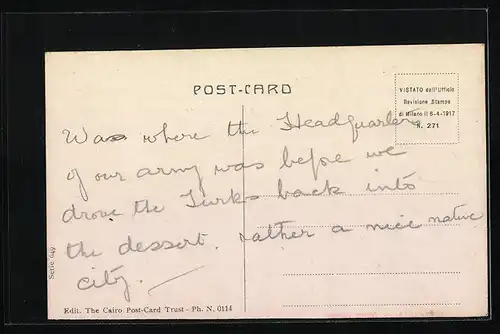 POST-CARD
VISTATO dall'Ufficio
Revisione Stampa
di Milano il 6-4-1917
N. 271
Was where the Headquarters
of our army was before we
drove the Turks back into
the dessert. rather a nice native
city. —
Serie 649
Edit. The Cairo Post-Card Trust - Ph. N. 0114